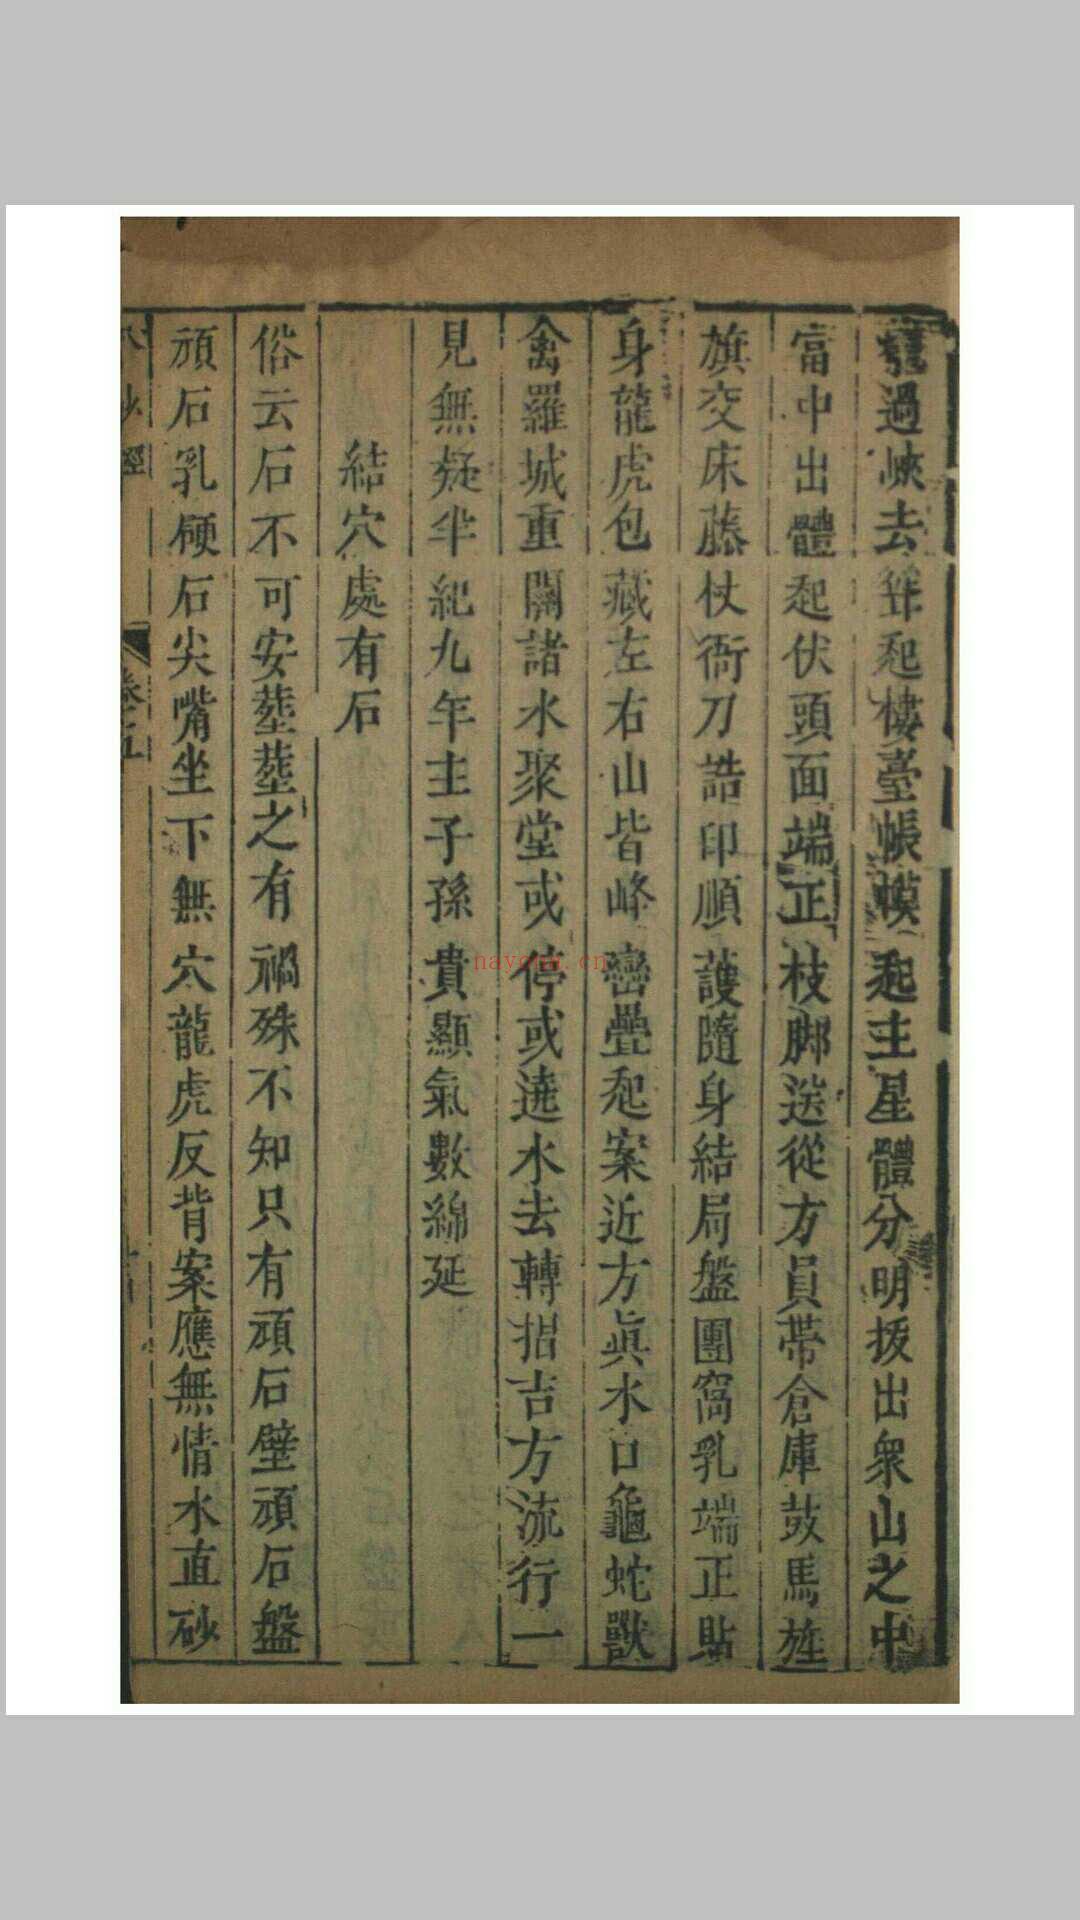 過峽去聳起樓臺帳幙起主星體分明拔出衆山之中
當中出體起伏頭面端正枝脚送從方員帶倉庫鼓馬旌
旗交床藤杖衙刀誥印順護隨身結局盤團窩乳端正貼
身龍虎包藏左右山皆峰巒疊起案近方眞水口龜蛇獸
禽羅城重關諸水聚堂或停或遶水去轉招吉方流行一
見無疑半紀九年主子孫貴顯氣數綿延
結穴處有石
俗云石不可安葬葬之有禍殊不知只有頑石壁頑石盤
頑石乳硬石尖嘴坐下無穴龍虎反背案應無情水直砂
卷十五
nayona.cn